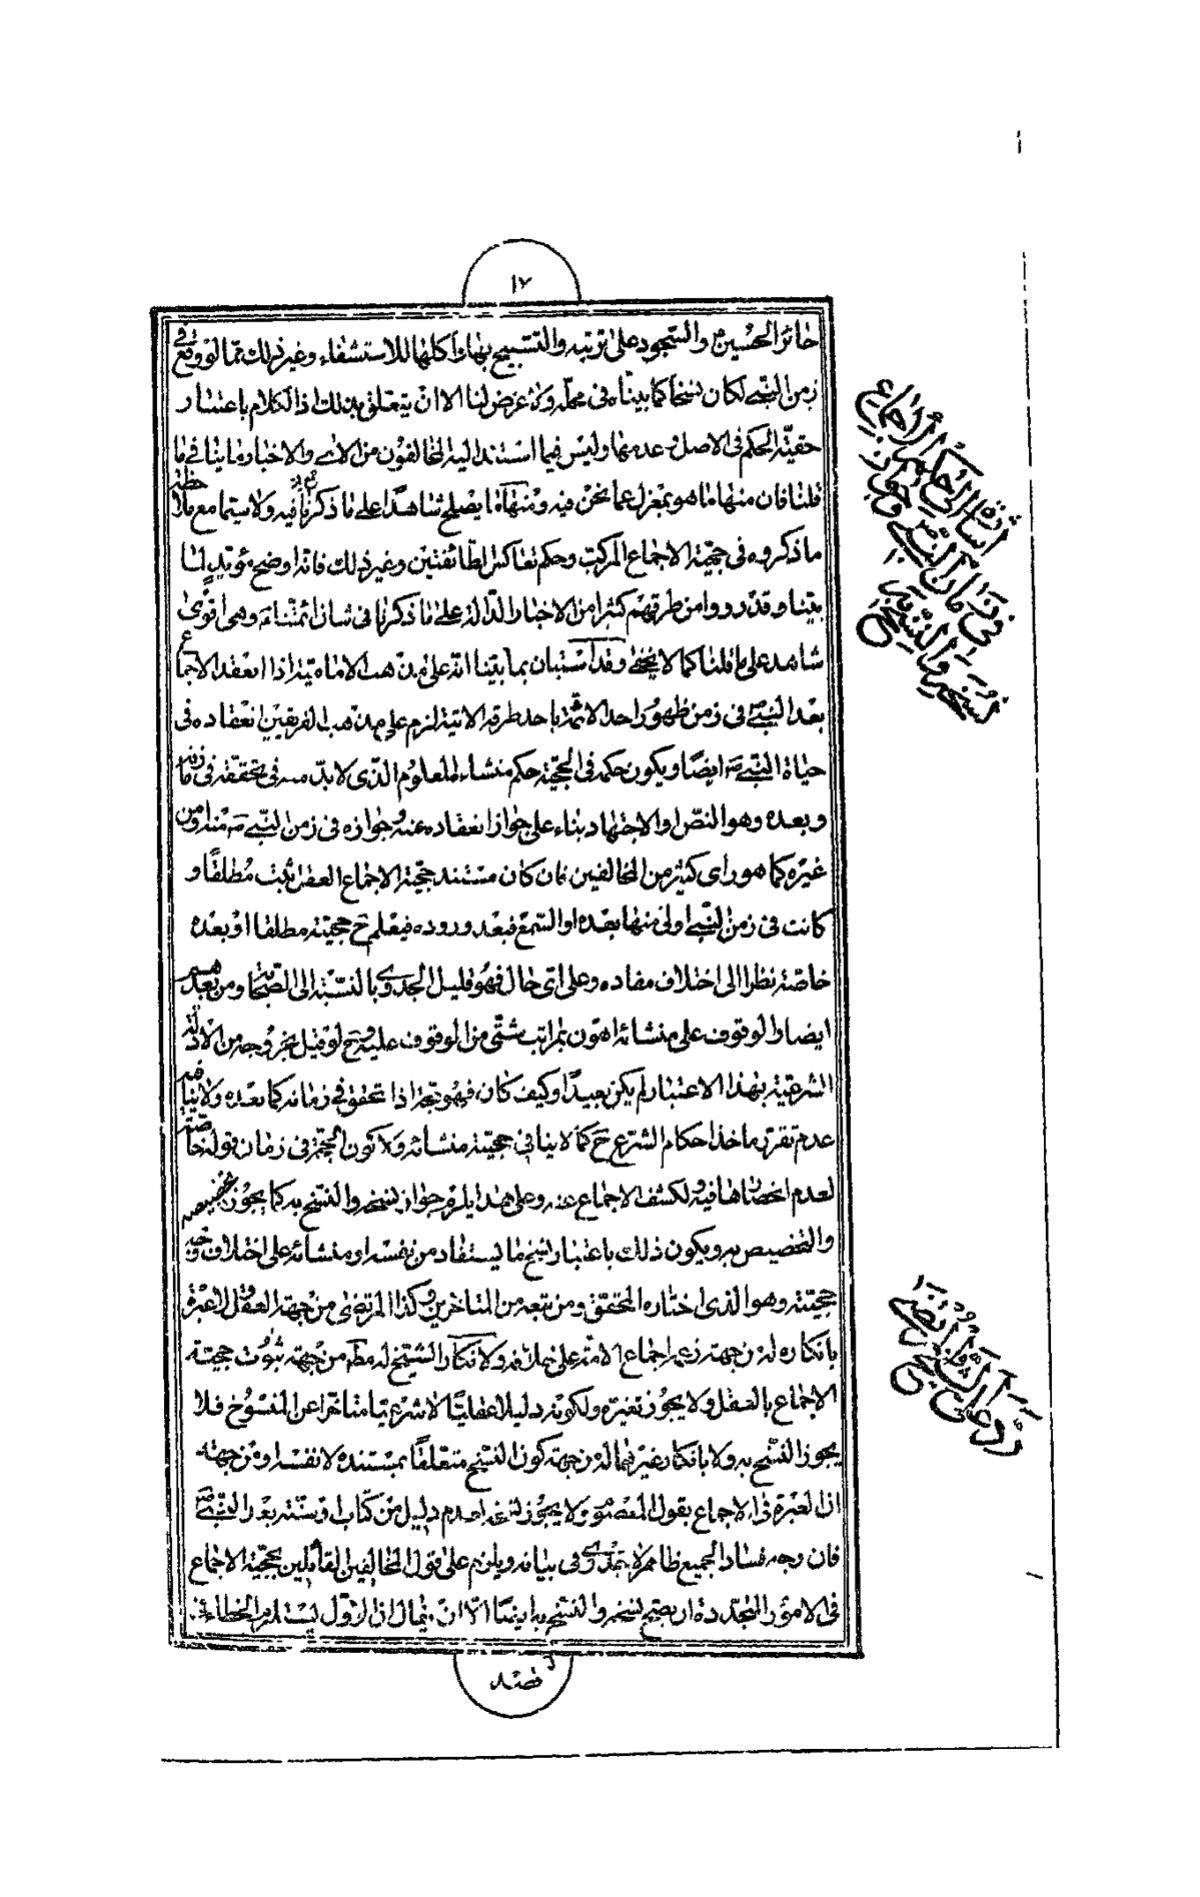 ١٧
حائر الحسين ع والسجود على تربته والتسبيح بها واكلها للاستشفاء وغير ذلك مما لو وقع في
زمن النبي لكان نسخا كما بيناه في محله ولا غرض لنا الا ان يتعلق بذلك اذ الكلام باعتبار
حقية الحكم في الاصل وعدمها وليس فيما استند اليه المخالفون من الاي والاخبار ما ينافي ما
قلنا فان منها ما هو بمعزل عما نحن فيه ومنها ما يصلح شاهدا على ما ذكرنا فيه ولا سيما مع ملاحظة
ما ذكروه في حجية الاجماع المركب وحكم تعاكس الطائفتين وغير ذلك فانه اوضح مؤيد لما
بينا وقد رووا من طرقهم كثيرا من الاخبار الدالة على ما ذكرنا في شان ائمتنا ع وهي اقوى
شاهد على ما قلنا كما لا يخفى وقد استبان بما بينا انه على مذهب الامامية اذا انعقد الاجماع
بعد النبي ص في زمن ظهور احد الائمة باحد طرقه الاتية لزم على مذهب الفريقين انعقاده في
حياة النبي ص ايضا ويكون حكمه في الحجية حكم منشاءه المعلوم الذي لا بد منه في تحققه في زمانه
وبعده وهو النص او الاجتهاد بناء على جواز انعقاده عنه وجوازه في زمن النبي ص منه او من
غيره كما هو راي كثير من المخالفين فان كان مستند حجية الاجماع العقل ثبت مطلقا و
كانت في زمن النبي اولى منها بعده او السمع فبعد وروده فيعلم ح حجيته مطلقا او بعده
خاصة نظرا الى اختلاف مفاده وعلى اي حال فهو قليل الجدوى بالنسبة الى الصحابة ومن بعدهم
ايضا والوقوف على منشائه اهون بمراتب شتى من الوقوف عليه وح لو قيل بخروجه من الادلة
الشرعية بهذا الاعتبار لم يكن بعيدا وكيف كان فهو حجة اذا تحقق في زمانه كما بعده ولا ينافيه
عدم تقرر ماخذ احكام الشرع ح كما لا ينافي حجية منشائه ولا كون الحجة في زمان قوله خاصة
لعدم انحصارها فيه ولكشف الاجماع عنه وعلى هذا يلزم جواز نسخه والنسخ به كما يجوز تخصيصه
والتخصيص به ويكون ذلك باعتبار نسخ ما يستفاد من نفسه او منشائه على اختلاف وجه
حجيته وهو الذي اختاره المحقق ومن تبعه من المتاخرين وكذا المرتضى من جهة العقل لا عبرة
بانكاره له من جهة زعمه اجماع الامة على خلافه ولا انكار الشيخ له مط من جهة ثبوت حجية
الاجماع بالعقل ولا يجوز تغيره ولكونه دليلا عقليا لا شرعيا متاخرا عن المنسوخ فلا
يجوز النسخ به ولا بانكار غيرهما له من جهة كون النسخ متعلقا بمستنده لا نفسه او من جهة
ان العبرة في الاجماع بقول المعصوم ولا يجوز دليل من كتاب او سنة بعد النبي ص
فان وجه فساد الجميع ظاهر لا جدوى في بيانه ويلزم على قول المخالفين القائلين بحجية الاجماع
في الامور المتجددة ان يصح نسخه والنسخ به ايضا الا ان يقال ان الاول يستلزم الخطاء
اشارة الى حكم الاجماع
في زمان النبي وجواز
نسخه والنسخ به
رد على الشيخ والمرتضى
قصد